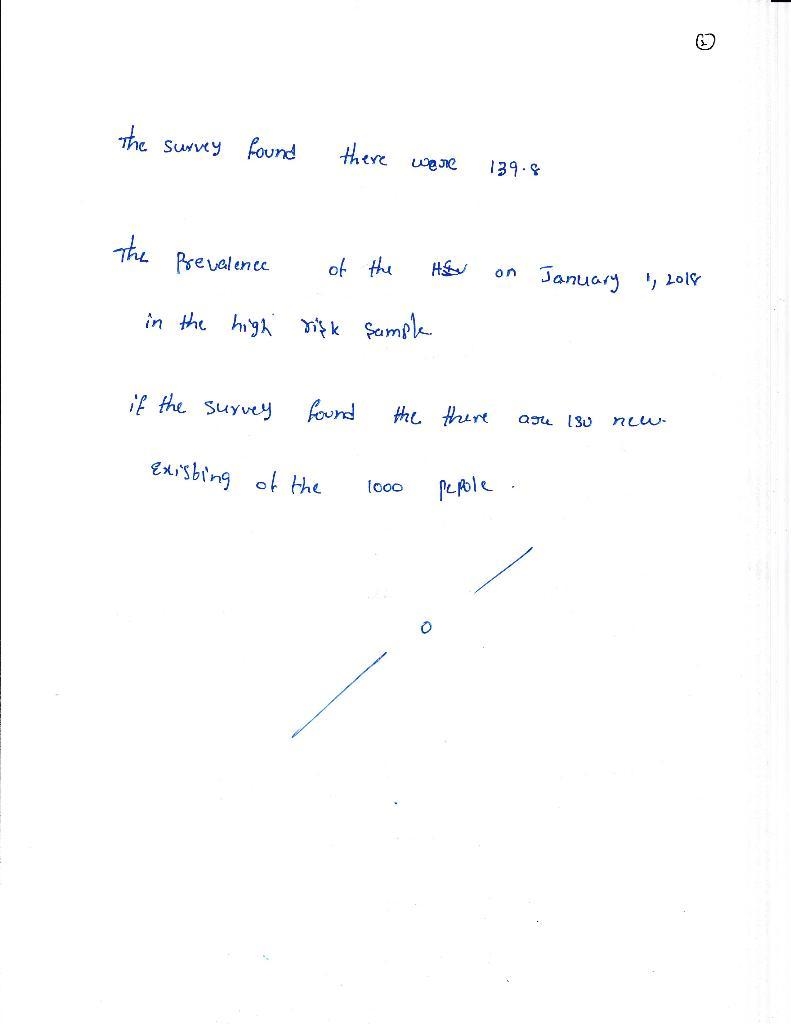 The survey found there were 139.8
The Prevalence of the on January 1, 2018
in the high risk sample
if the survey found the there are 150 new.
Existbing of the 1000 pepole .